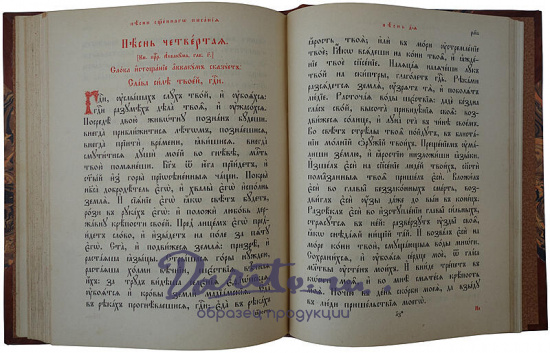 Пѣ́снь четве́ртаѧ.
Сло́ва истоща́нїе аввакꙋ́мъ ска́зꙋетъ:
Сла́ва си́лѣ твое́й, гдⷭ҇и.
Гдⷭ҇и, ᲂуслы́шахъ слꙋ́хъ тво́й, и ᲂубоѧ́хсѧ:
гдⷭ҇и, разꙋмѣ́хъ дѣла̀ твоѧ̑, и ᲂужасо́хсѧ.
Посредѣ̀ двою̀ живо́тнꙋ позна́нъ бꙋ́деши,
внегда̀ прибли́житисѧ лѣ́тѡмъ, позна́ешисѧ,
внегда̀ прїитѝ вре́мени, ꙗви́шисѧ, внегда̀
смꙋти́тисѧ дꙋшѝ мое́й во гнѣ́вѣ, ми́лость
твою̀ помѧне́ши. Бг҃ъ ѿ ю҆́га прїи́детъ, и
ст҃ы́й из̾ горы̀ приѡсѣне́нныѧ ча́щи. Покры̀
нб҃са̀ добродѣ́тель є҆гѡ̀, и хвалы̀ є҆гѡ̀ и҆спо́лнь
землѧ̀. И сїѧ́нїе є҆гѡ̀ ꙗ҆́кѡ свѣ́тъ бꙋ́детъ,
ро́зи въ рꙋка́хъ є҆гѡ̀: и положѝ любо́вь дер-
жа́внꙋ крѣ́пости своеѧ̀. Пред̾ лице́мъ є҆гѡ̀ пре-
и́детъ сло́во, и и҆зы́детъ на по́ле за пѧта́-
ма є҆гѡ̀. Ста̀, и подви́жесѧ землѧ̀: призрѣ̀, и
раста́ѧша ꙗ҆зы́цы. Стры́шасѧ го́ры нꙋ́ждею,
раста́ѧша хо́лми
за трꙋ́ды
ᲂубоѧ́тсѧ и кро́вы землѝ мадїа́мскїѧ. Е҆да̀
въ рѣка́хъ прогнѣ́ваешисѧ, гдⷭ҇и; є҆да̀ въ рѣка́хъ
ꙗ҆́рость твоѧ̀; и҆лѝ въ мо́ри ᲂустремле́нїе
твоѐ; Ꙗ҆́кѡ всѧ́деши на ко́ни твоѧ̑, и ꙗ҆жде́-
нїе твоѐ сп҃се́нїе. Налѧца́ѧ налѧче́ши лꙋ́къ
тво́й на ски́птры, глаго́летъ гдⷭ҇ь. Рѣка́ми
разсѧ́детсѧ землѧ̀, ᲂу҆́зрѧтъ тѧ̀, и поболѧ́тъ
лю́дїе. Расточа́ѧ во́ды ше́ствїѧ: дадѐ бе́здна
гла́съ сво́й, высота̀ привидѣ́нїѧ своѧ̑. Воздви́-
жесѧ со́лнце, и лꙋна̀ ста̀ въ чи́нѣ свое́мъ.
Во свѣ́тъ стрѣ́лы твоѧ̑ по́йдꙋтъ, въ блиста́-
нїи мо́лнїй ѻ҆рꙋ́жїй твои́хъ. Преще́нїемъ
ᲂума́лиши зе́млю, и ꙗ҆́ростїю низложи́ши ꙗ҆зы́-
ки. И҆зше́лъ є҆сѝ на сп҃се́нїе люде́й твои́хъ, сп҃стѝ
пома́занныѧ твоѧ̑ прише́лъ є҆сѝ. Вложи́лъ
є҆сѝ во главы̑ беззако́нныхъ сме́рть, воз-
дви́глъ є҆сѝ ᲂу҆́зы да́же до вы́и в коне́цъ.
Разсѣ́клъ є҆сѝ во и҆зстꙋпле́нїи главы̑ си́льныхъ,
сотрѧсꙋ́тсѧ въ не́й: разве́рзꙋтъ ᲂузды̑ своѧ̑,
ꙗ҆́кѡ снѣда́ѧй ни́щїй та́й. И возве́лъ є҆сѝ на
мо́ре ко́ни твоѧ̑, смꙋща́ющыѧ во́ды мнѡ́ги.
Сохрани́хсѧ, и ᲂубоѧ́сѧ се́рдце моѐ, ѿ гла́са
мл҃твы ᲂусте́нъ мои́хъ. И вни́де тре́петъ въ
кѡ́сти моѧ̑, и во мнѣ̀ смѧте́сѧ крѣ́пость
моѧ̀. Почі́ю въ де́нь ско́рби моеѧ̀, да взы́дꙋ
въ лю́ди прише́льствїѧ моегѡ̀.
образец продукции